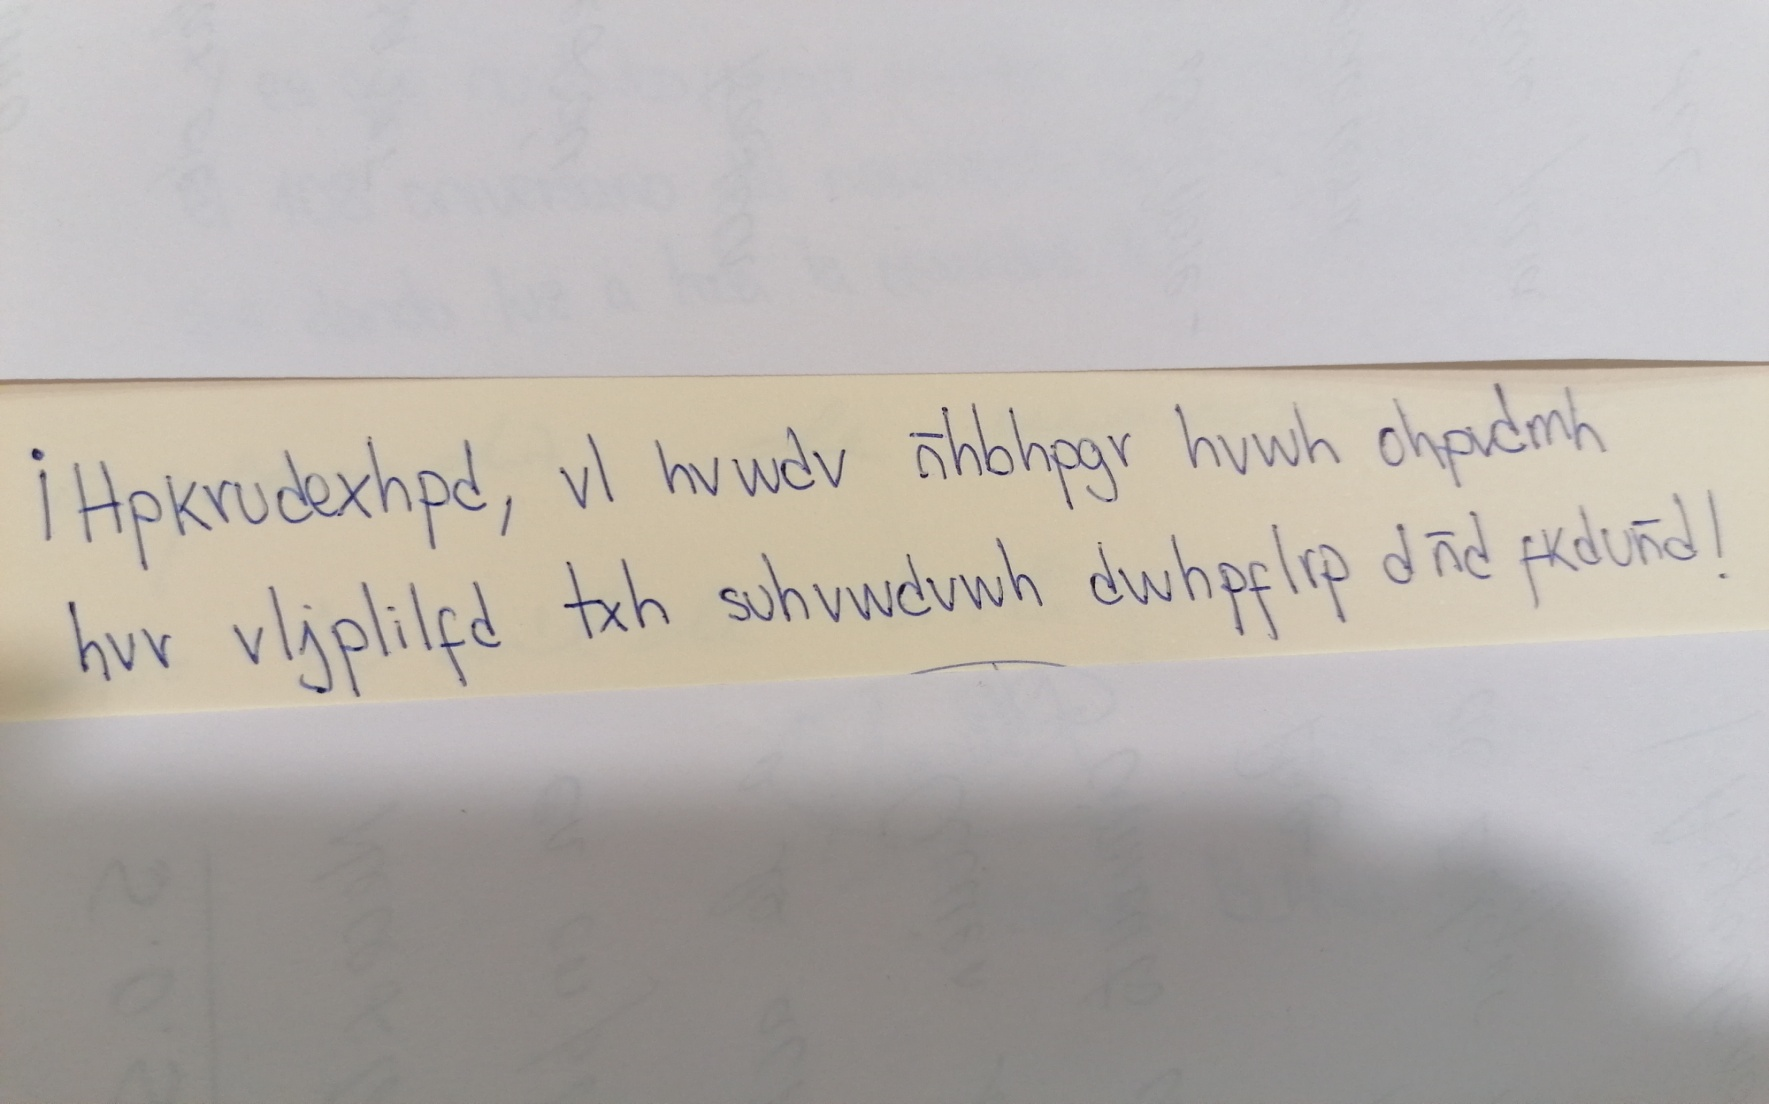 ¡Hpkrudexhpd, vl hvwdv ñhbhpgr hvwh ohpvdmh
hvr vljplilfd txh suhvwdvwh dwhpflrp d ñd fkduñd!